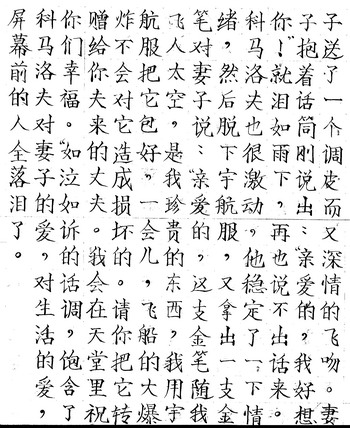 子送了一个调皮而又深情的飞吻。妻
子抱着话筒刚说出:“亲爱的,我好想
你!”就泪如雨下,再也说不出话来。
科马洛夫也很激动,他稳定了一下情
绪,然后脱下宇航服,又拿出一支金
笔对妻子说:“亲爱的,这支金笔随我
飞人太空,是我珍贵的东西,我用宇
航服把它包好,一会儿,飞船的大爆
炸不会对它造成损坏的。请你把它转
赠给你夫来的丈夫。我会在天堂里祝
你们幸福。”如泣如诉的话调,饱含了
科马洛夫对妻子的爱,对生活的爱,
屏幕前的人全落泪了。